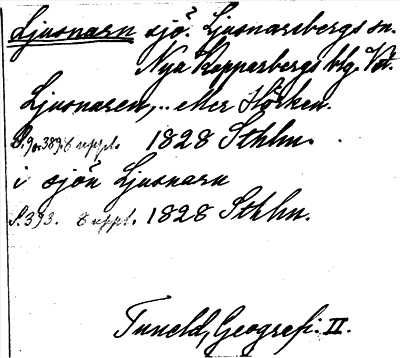 Ljusnaren sjö. Ljusnarsbergs sn.
Nya Kopparbergs blg. Vstm.
Ljusnaren,.. eller Hörken.
S. 90. 389. 8 uppl. 1828 Sthlm.
i sjön Ljusnarn
S. 393. 8 uppl. 1828 Sthlm.
Tuneld, Geografi. II.